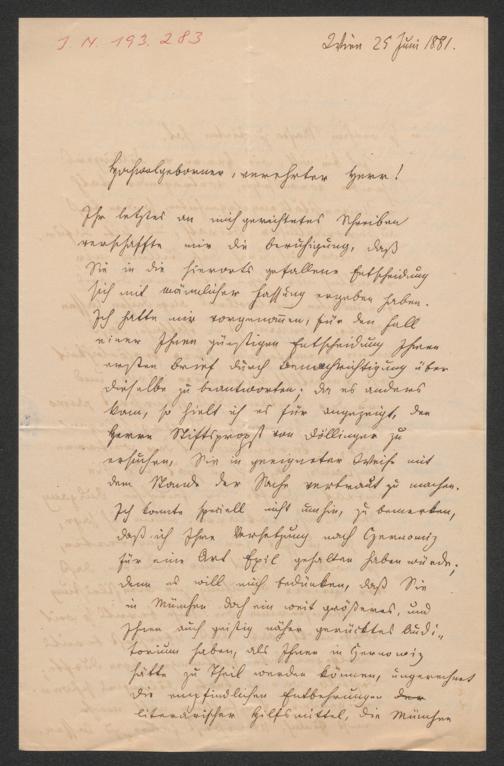 J. N. 193.283
Wien 25 Juni 1881.
Hochwolgeborner, verehrter Herr!
Ihr letztes an mich gerichtetes Schreiben
verschaffte mir die Beruhigung, daß
Sie in die hierorts gefallene Entscheidung
sich mit männlicher Fassung ergeben haben.
Ich hatte mir vorgenommen, für den Fall
einer Ihnen günstigen Entscheidung Ihren
ersten Brief durch Benachrichtigung über
dieselbe zu beantworten; da es anders
kam, so hielt ich es für angezeigt, den
Herrn Stiftspropst von Döllinger zu
ersuchen, Sie in geeigneter Weise mit
dem Stande der Sache vertraut zu machen.
Ich konnte speciell nicht umhin, zu bemerken,
daß ich Ihre Versetzung nach Czernowiz
für eine Art Exil gehalten haben würde;
denn es will mich bedünken, daß Sie
in München doch ein weit größeres, und
Ihnen auch geistig näher gerücktes Audi-
torium haben, als Ihnen in Czernowiz
hätte zu Theil werden können, ungerechnet
die empfindlichen Entbehrungen der
literarischer Hilfsmittel, die München